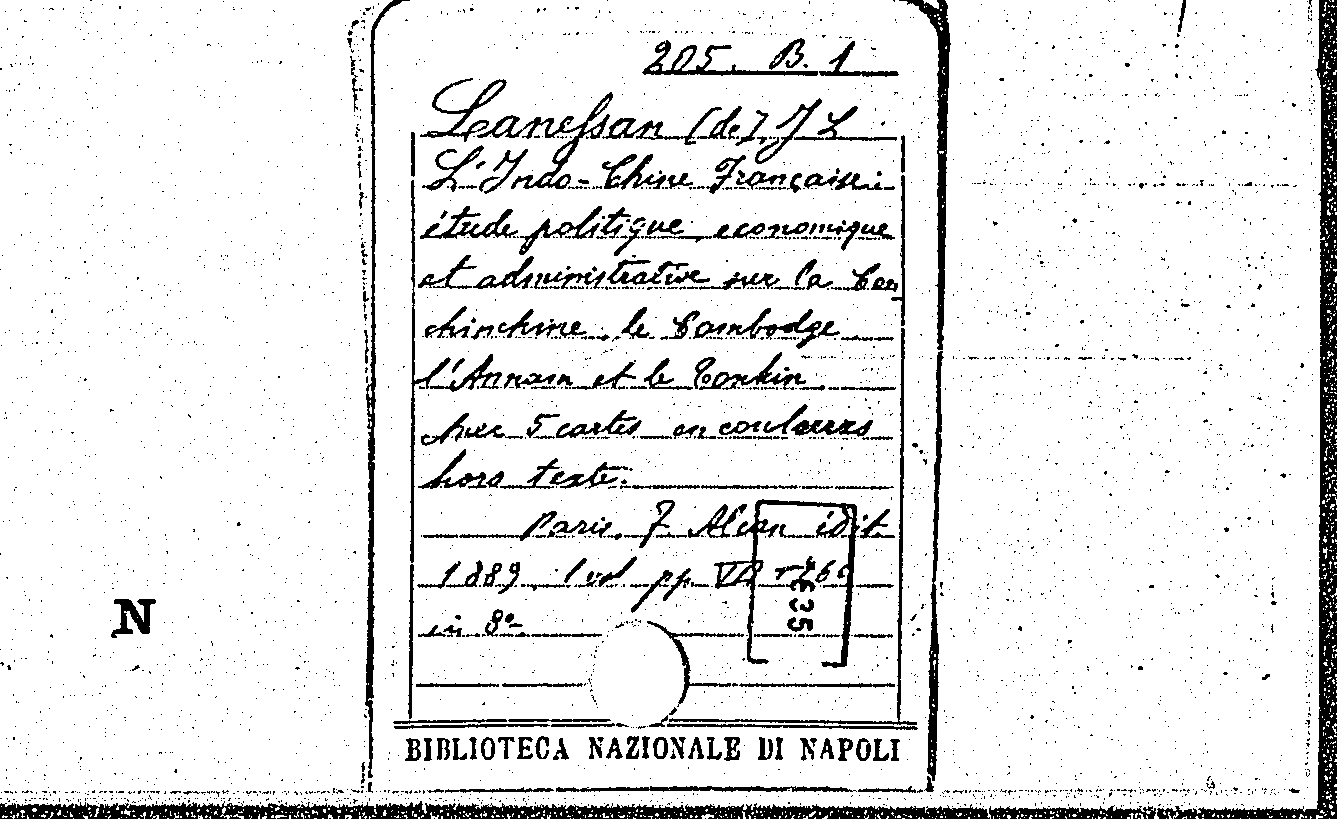 205. B. 1
Lanessan (de) J L
L'Indo-Chine Française:
étude politique, economique
et administrative sur la Coc
chinchine, le Cambodge
l'Annam et le Tonkin.
Avec 5 cartes en couleurs
hors texte.
Paris. F. Alcan édit.
1889. 1 vol pp. VII
in 8°
N
BIBLIOTECA NAZIONALE DI NAPOLI